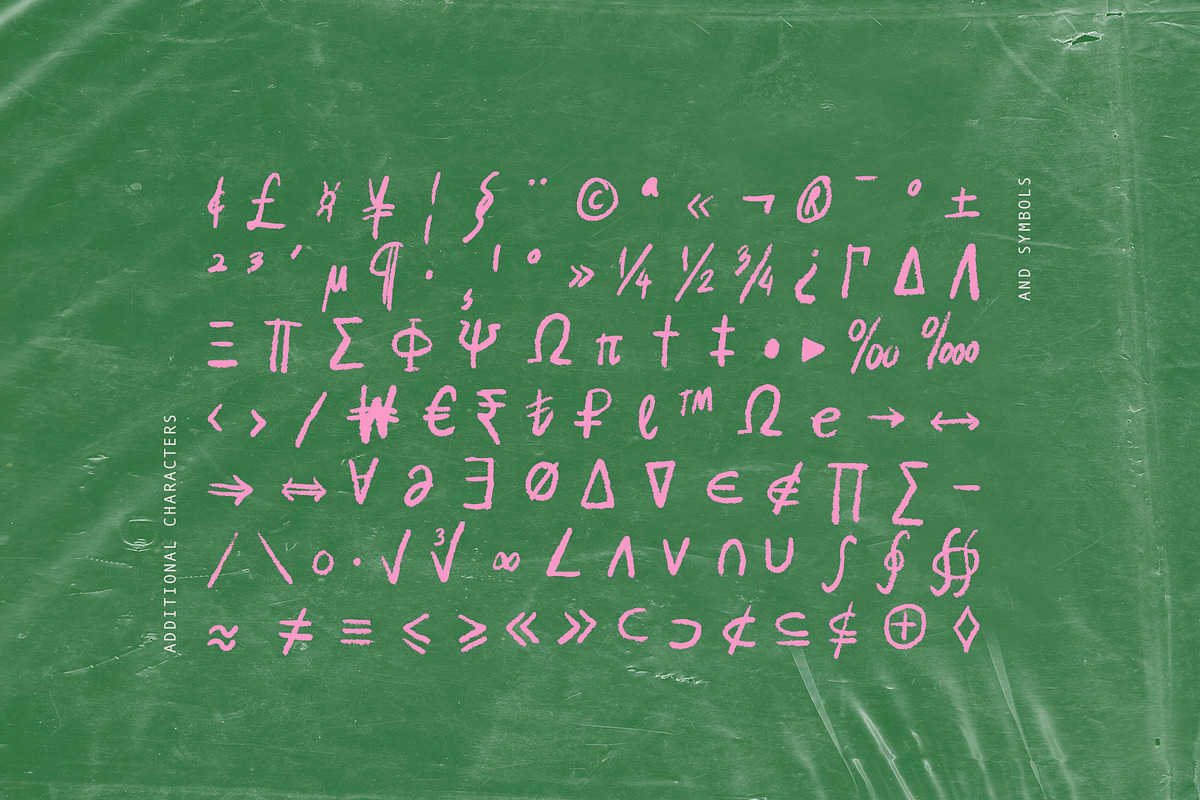 ¢ £ ¤ ¥ ¦ § ¨ © ª « ¬ ® ¯ ° ±
² ³ ´ µ ¶ · ¸ ¹ º » ¼ ½ ¾ ¿ Γ Δ Λ
Ξ Π Σ Φ Ψ Ω π † ‡ • ‣ ‰ ‱
‹ › ⁄ ₩ € ₹ ₺ ₽ ℓ ™ Ω ℮ → ↔
⇒ ⇔ ∀ ∂ ∃ ∅ ∆ ∇ ∈ ∉ ∏ ∑ −
∕ ∖ ∘ ∙ √ ∛ ∞ ∠ ∧ ∨ ∩ ∪ ∫ ∮ ∯
≈ ≠ ≡ ≤ ≥ ≪ ≫ ⊂ ⊃ ⊄ ⊆ ⊈ ⊕ ◊
ADDITIONAL CHARACTERS
AND SYMBOLS